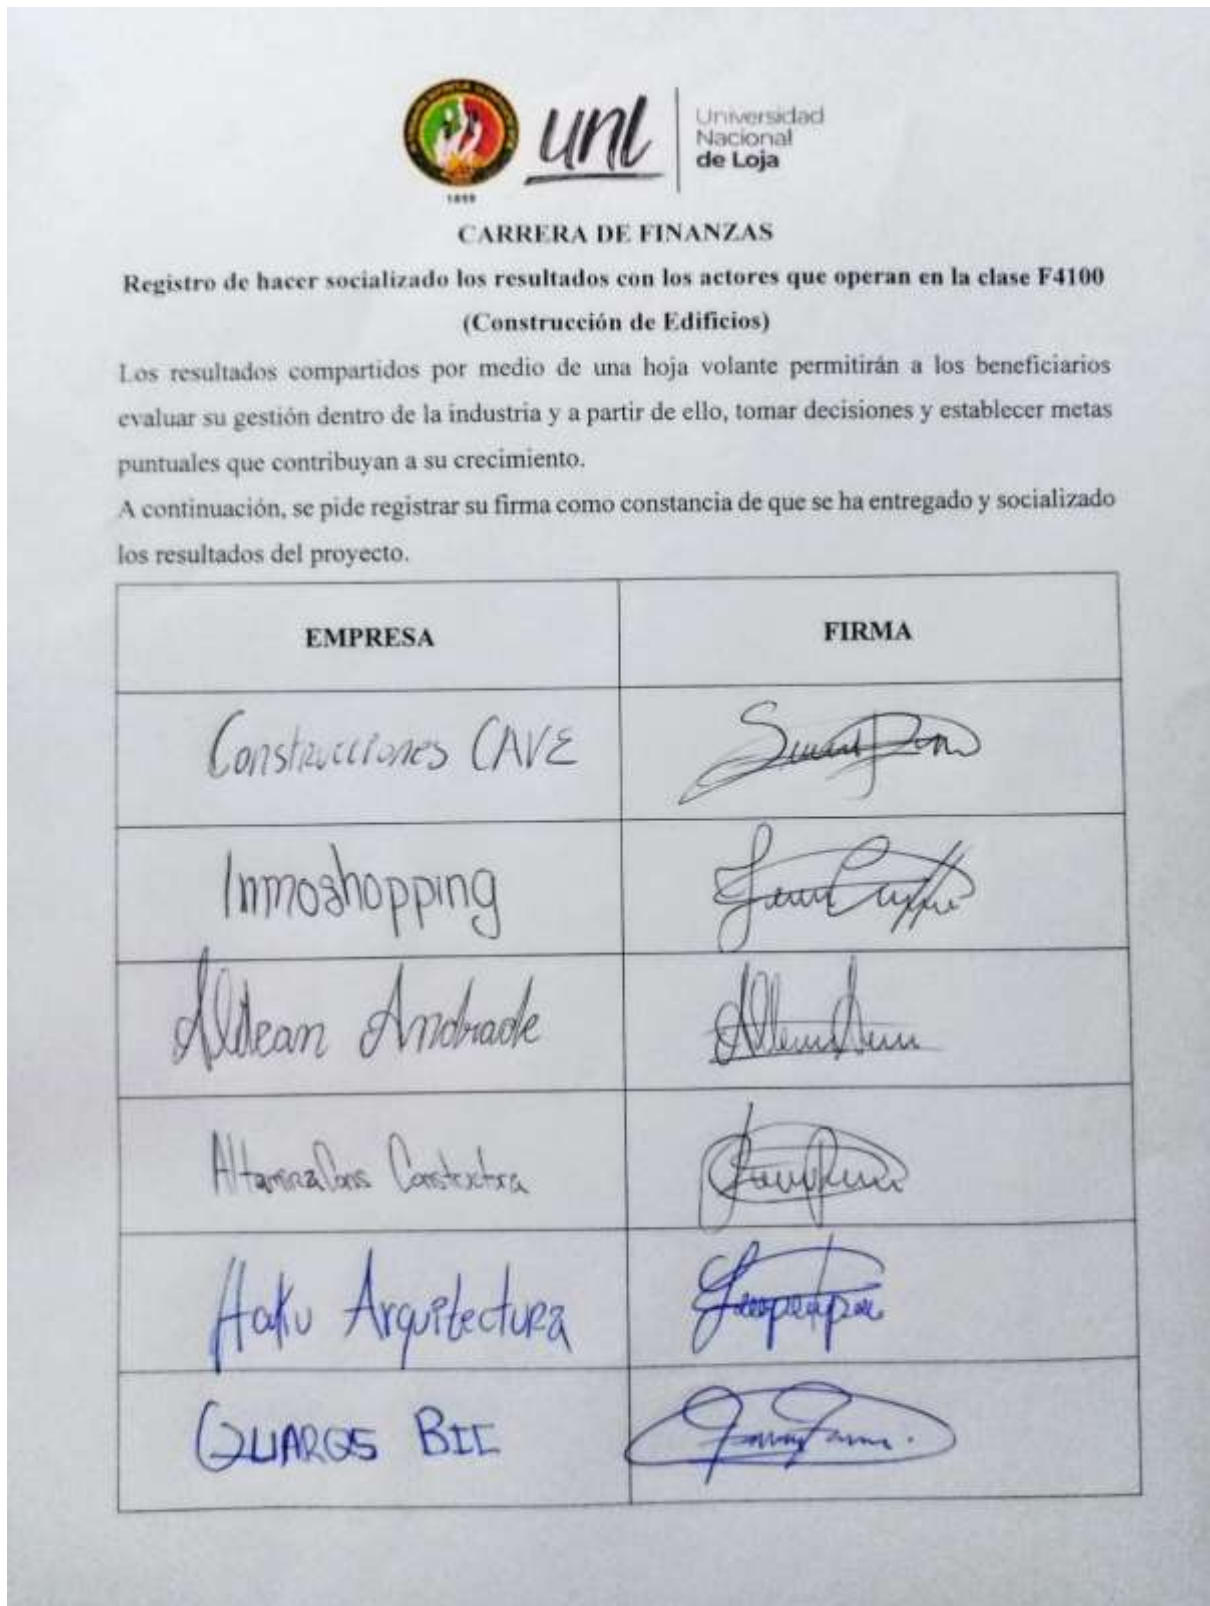 unl
Universidad
Nacional
de Loja
1859
CARRERA DE FINANZAS
Registro de hacer socializado los resultados con los actores que operan en la clase F4100
(Construcción de Edificios)
Los resultados compartidos por medio de una hoja volante permitirán a los beneficiarios
evaluar su gestión dentro de la industria y a partir de ello, tomar decisiones y establecer metas
puntuales que contribuyan a su crecimiento.
A continuación, se pide registrar su firma como constancia de que se ha entregado y socializado
los resultados del proyecto.
EMPRESA
FIRMA
Construcciones CAVE
Inmoshopping
Aldean Andrade
AltamiraCons Constructora
Haku Arquitectura
QUARQS BIC